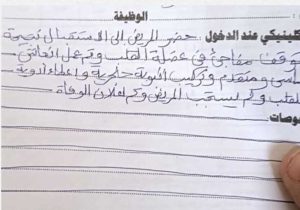 الوظيفة
كلينيكي عند الدخول : حضر المريض الى الاستقبال نتيجة
توقف مفاجئ في عضلة القلب وتم عمل انعاش
اساسي ومتقدم وتركيب انبوبة حنجرية واعطاء ادوية
للقلب ولم يستجب المريض وتم اعلان الوفاة
وصات: